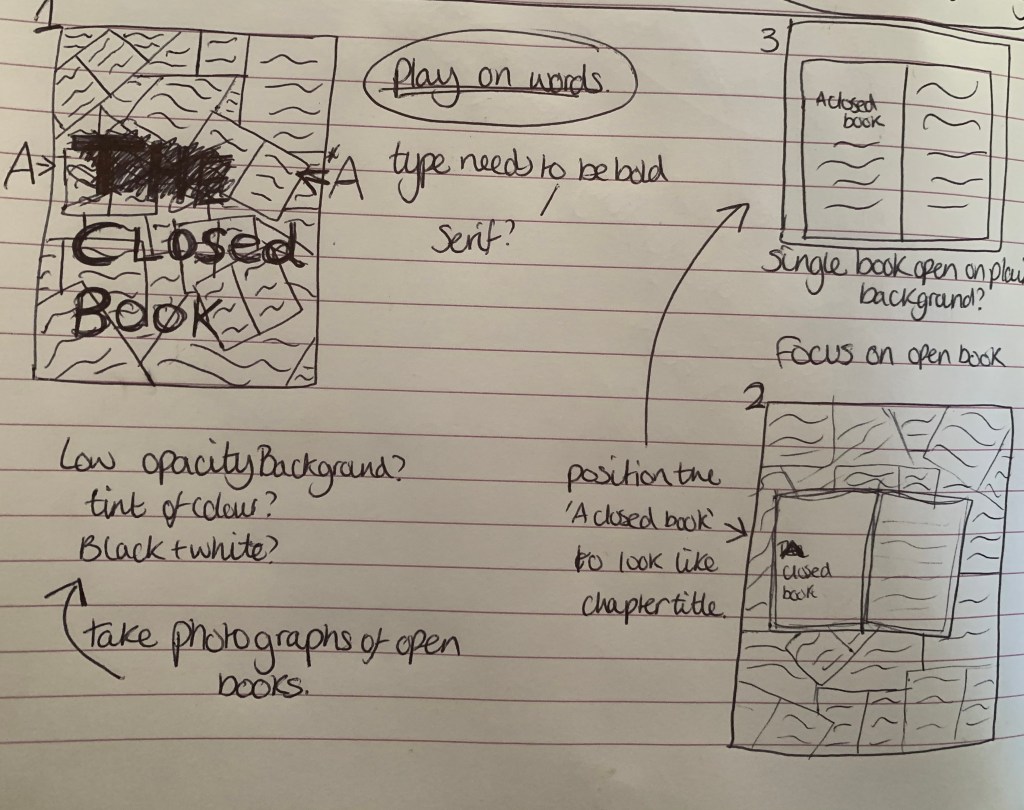 1
Play on words.
A
THE
A
Closed
Book
type needs to be bold
Serif?
Low opacity Background?
tint of colour?
Black + white?
take photographs of open
books.
3
A closed
book
Single book open on plain
background?
Focus on open book
2
position the
'A closed book'
to look like
chapter title.
closed
book